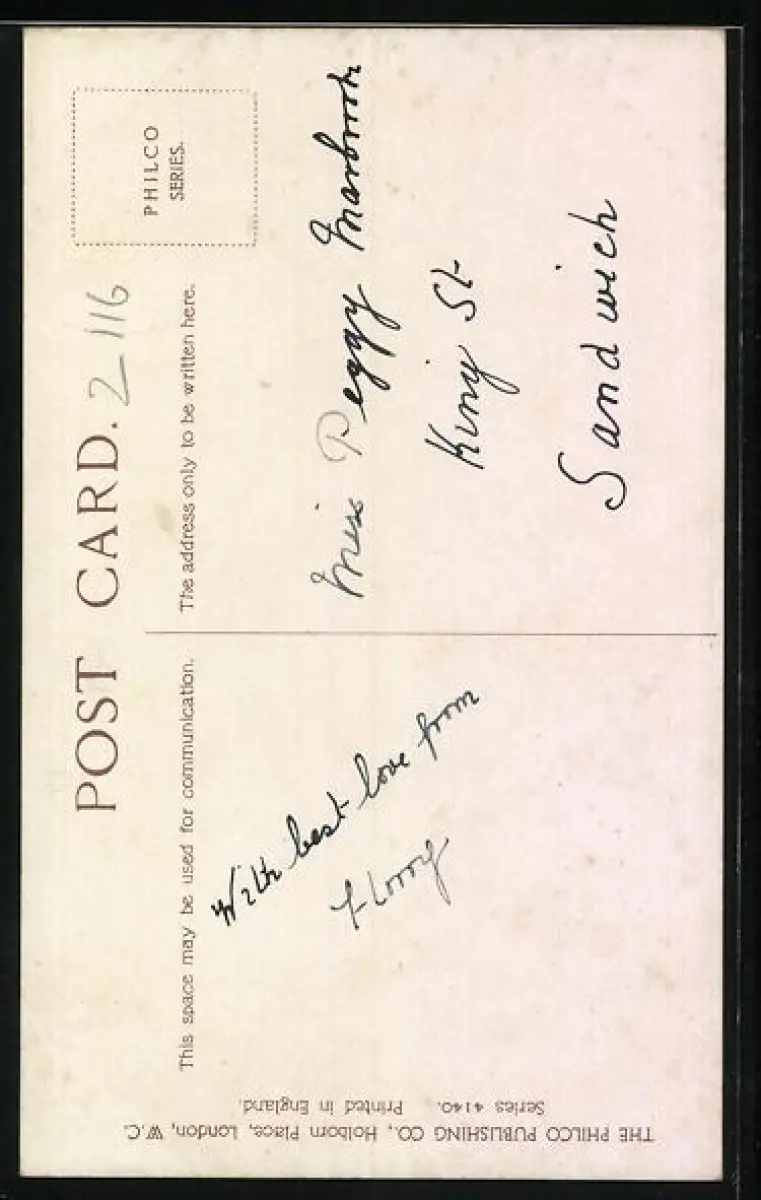 POST CARD.
2116
PHILCO
SERIES.
This space may be used for communication.
The address only to be written here.
With best love from
Florry
Miss Peggy
King St
Sandwich
THE PHILCO PUBLISHING CO., Holborn Place, London, W.C.
Series 4140. Printed in England.